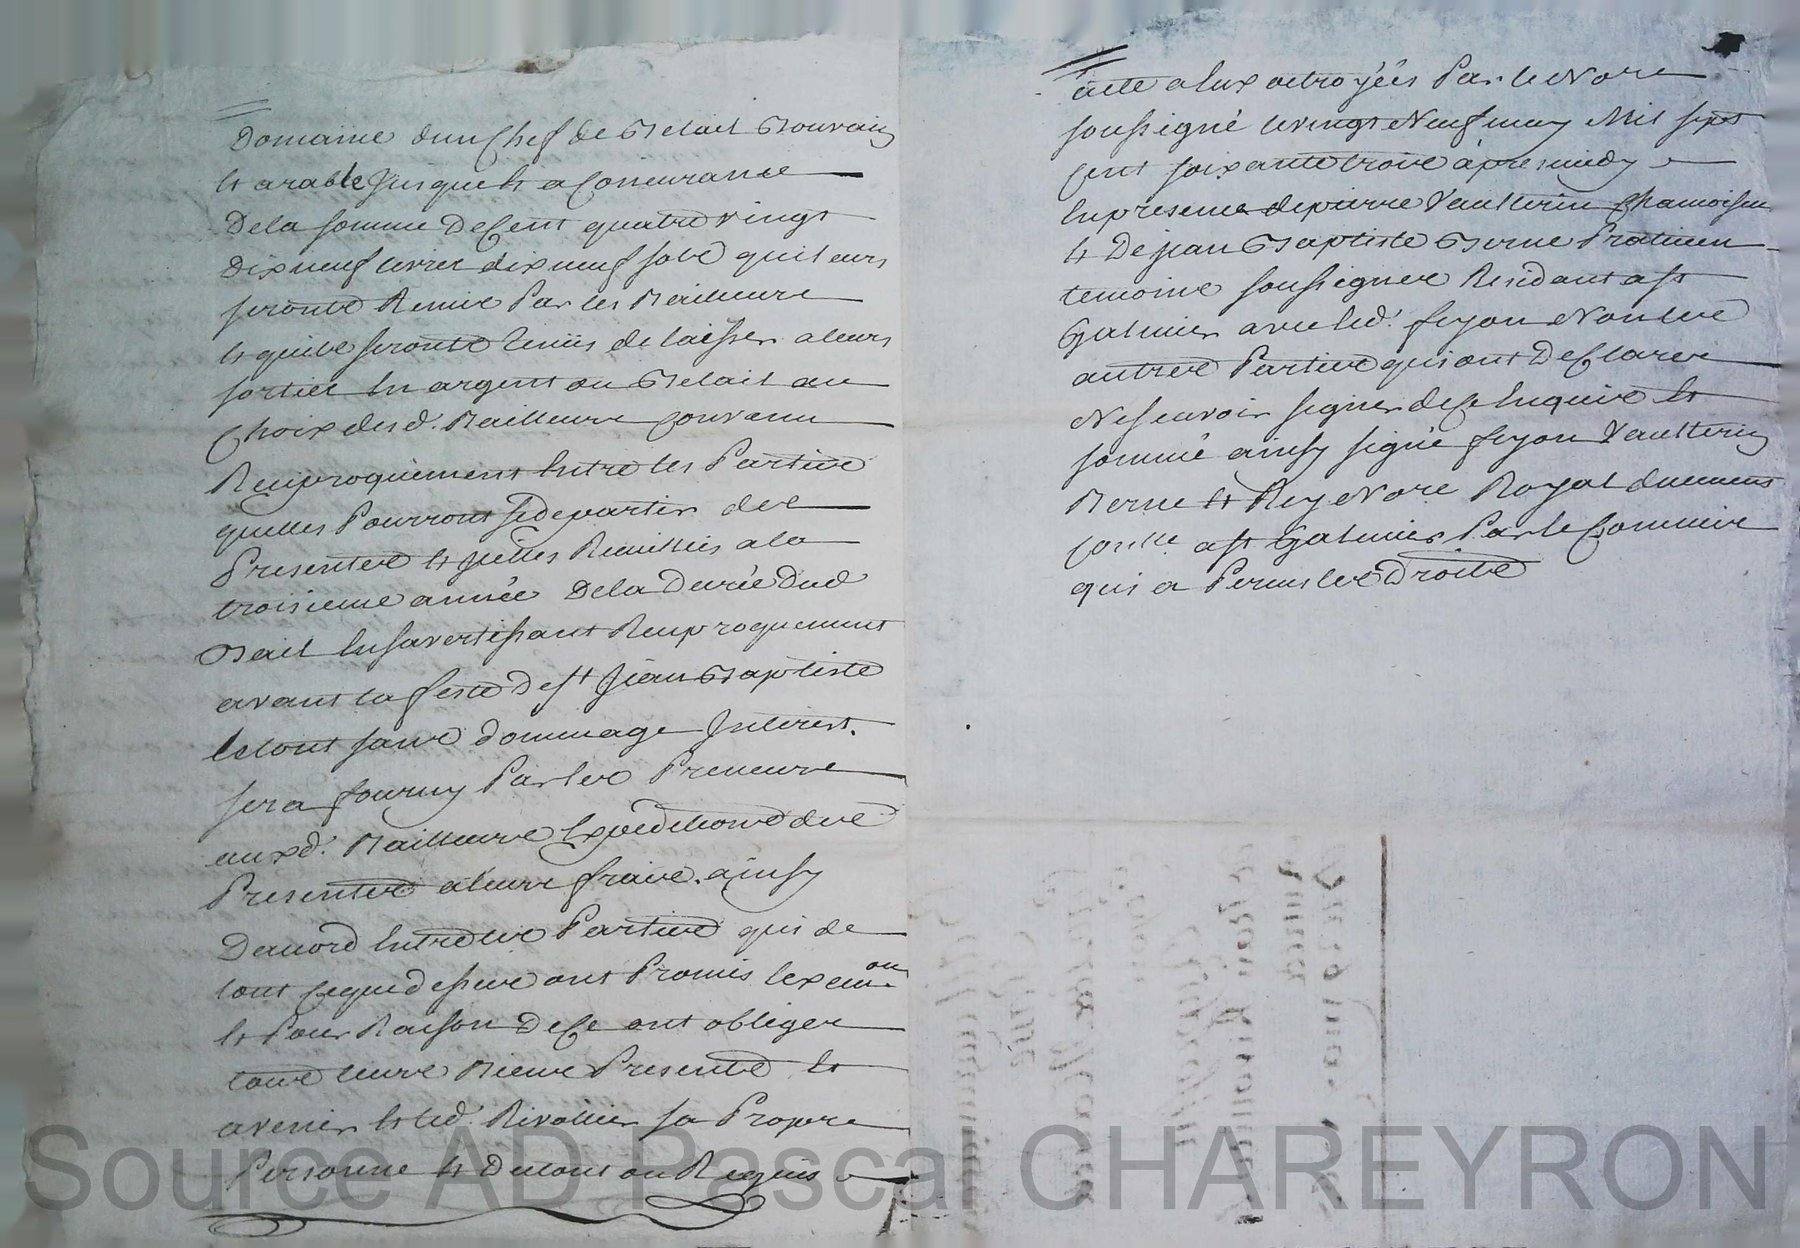 Domaine dun Chef de Betail Bouvain
et arable Jusques et a Concurance
Dela somme De Cent quatre vingt
Dix neuf livres dix neuf sols quileurs
seronts Remis Par les Bailleurs
et quils seronts tenus de laisser aleurs
sortier En argent ou Betail au
Choix desd. Bailleurs convenu
Reciproquement Entre les Parties
quelles Pourront se departir des
Presentes et Jcelles Resillies ala
troisieme année Dela Durée Dud
Bail En savertissant Reciproquement
avant la feste De St Jean Baptiste
le tout sans dommage Jnterest.
sera fourny Par les Preneurs
auxd. Bailleurs Expeditions des
Presentes a leurs frais. ainsy
Daccord Entre les Parties qui de
tout ce que dessus ont Promis lexecu.on
et Pour Raison De Ce ont obliger
tous leurs Biens Presents et
avenir et led. Rivollier sa Propre
Personne et Dutout ou Requis
acte a Eux octroyées Par le No.re
soussigné le vingt Neuf may Mil sept
cent soixante trois apres midy
En presence de pierre Vaulterin Chamoiseur
et De jean Baptiste Berne Praticien
temoins soussignes Residant a St
Galmier avec led. feyon Non les
autres Parties qui ont Declarer
Ne scavoir signer de Ce Enquis et
sommé ainsy signé feyon Vaulterin
Berne et Rey No.re Royal duement
con.lle a St Galmier Par le Commis
qui a Perçus les Droits
Source AD Pascal CHAREYRON